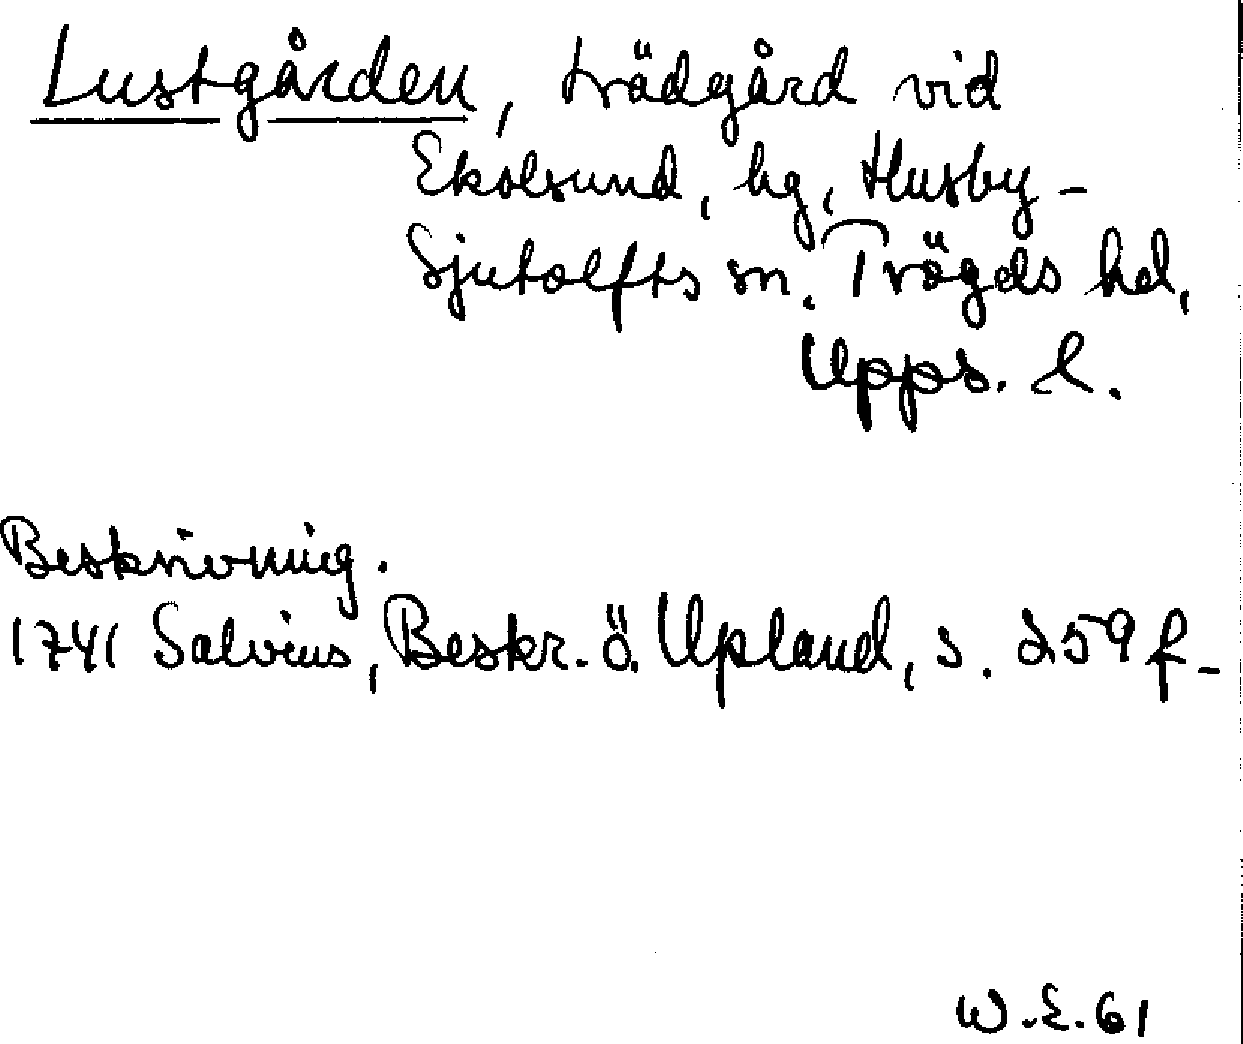 Lustgården, trädgård vid
Ekolsund, hg, Husby-
Sjutolfts sn. Trögds hd,
Upps. l.
Beskrivning.
1741 Salvius, Beskr. ö. Upland, s. 259 f.
W.E. 61